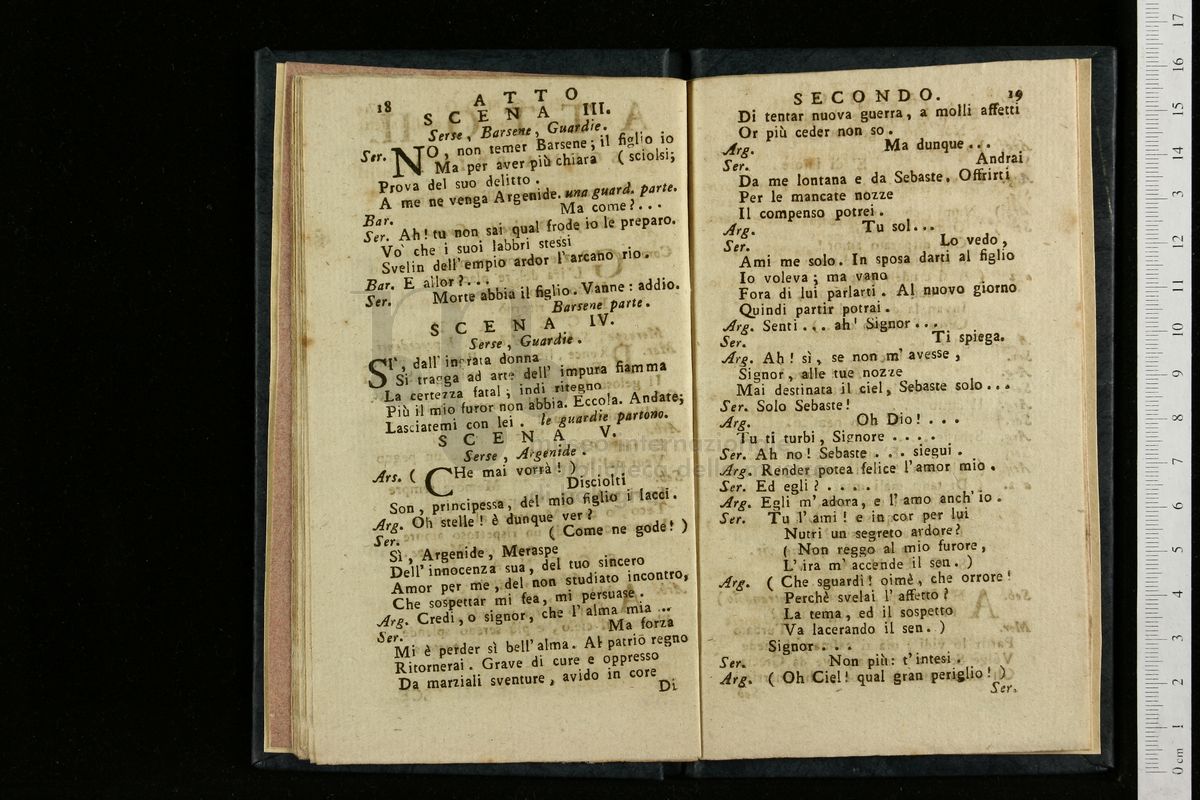 18
ATTO
SCENA III.
Serse, Barsene, Guardie.
Ser. NO, non temer Barsene; il figlio io
Ma per aver più chiara ( sciolsi;
Prova del suo delitto.
A me ne venga Argenide. una guard. parte.
Bar. Ma come?...
Ser. Ah! tu non sai qual frode io le preparo.
Vo' che i suoi labbri stessi
Svelin dell' empio ardor l' arcano rio.
Bar. E allor?...
Ser. Morte abbia il figlio. Vanne: addio.
Barsene parte.
SCENA IV.
Serse, Guardie.
SI', dall' ingrata donna
Si tragga ad arte dell' impura fiamma
La certezza fatal; indi ritegno
Più il mio furor non abbia. Eccola. Andate;
Lasciatemi con lei. le guardie partono.
SCENA V.
Serse, Argenide.
Ars. ( CHe mai vorrà! )
Disciolti
Son, principessa, del mio figlio i lacci.
Arg. Oh stelle! è dunque ver?
Ser. ( Come ne gode! )
Sì, Argenide, Meraspe
Dell' innocenza sua, del tuo sincero
Amor per me, del non studiato incontro,
Che sospettar mi fea, mi persuase.
Arg. Credi, o signor, che l' alma mia ...
Ser. Ma forza
Mi è perder sì bell' alma. Al patrio regno
Ritornerai. Grave di cure e oppresso
Da marziali sventure, avido in core
Di
SECONDO.
19
Di tentar nuova guerra, a molli affetti
Or più ceder non so.
Arg. Ma dunque...
Ser. Andrai
Da me lontana e da Sebaste. Offrirti
Per le mancate nozze
Il compenso potrei.
Arg. Tu sol...
Ser. Lo vedo,
Ami me solo. In sposa darti al figlio
Io voleva; ma vano
Fora di lui parlarti. Al nuovo giorno
Quindi partir potrai.
Arg. Senti... ah! Signor...
Ser. Ti spiega.
Arg. Ah! sì, se non m' avesse,
Signor, alle tue nozze
Mai destinata il ciel, Sebaste solo...
Ser. Solo Sebaste!
Arg. Oh Dio!...
Tu ti turbi, Signore ....
Ser. Ah no! Sebaste ... siegui.
Arg. Render potea felice l' amor mio.
Ser. Ed egli? ....
Arg. Egli m' adora, e l' amo anch' io.
Ser. Tu l' ami! e in cor per lui
Nutri un segreto ardore?
( Non reggo al mio furore,
L' ira m' accende il sen. )
Arg. ( Che sguardi! oimè, che orrore!
Perchè svelai l' affetto?
La tema, ed il sospetto
Va lacerando il sen. )
Signor...
Ser. Non più: t' intesi.
Arg. ( Oh Ciel! qual gran periglio! )
Ser.
museo internazionale
biblioteca della
0 cm 1 2 3 4 5 6 7 8 9 10 11 12 13 14 15 16 17